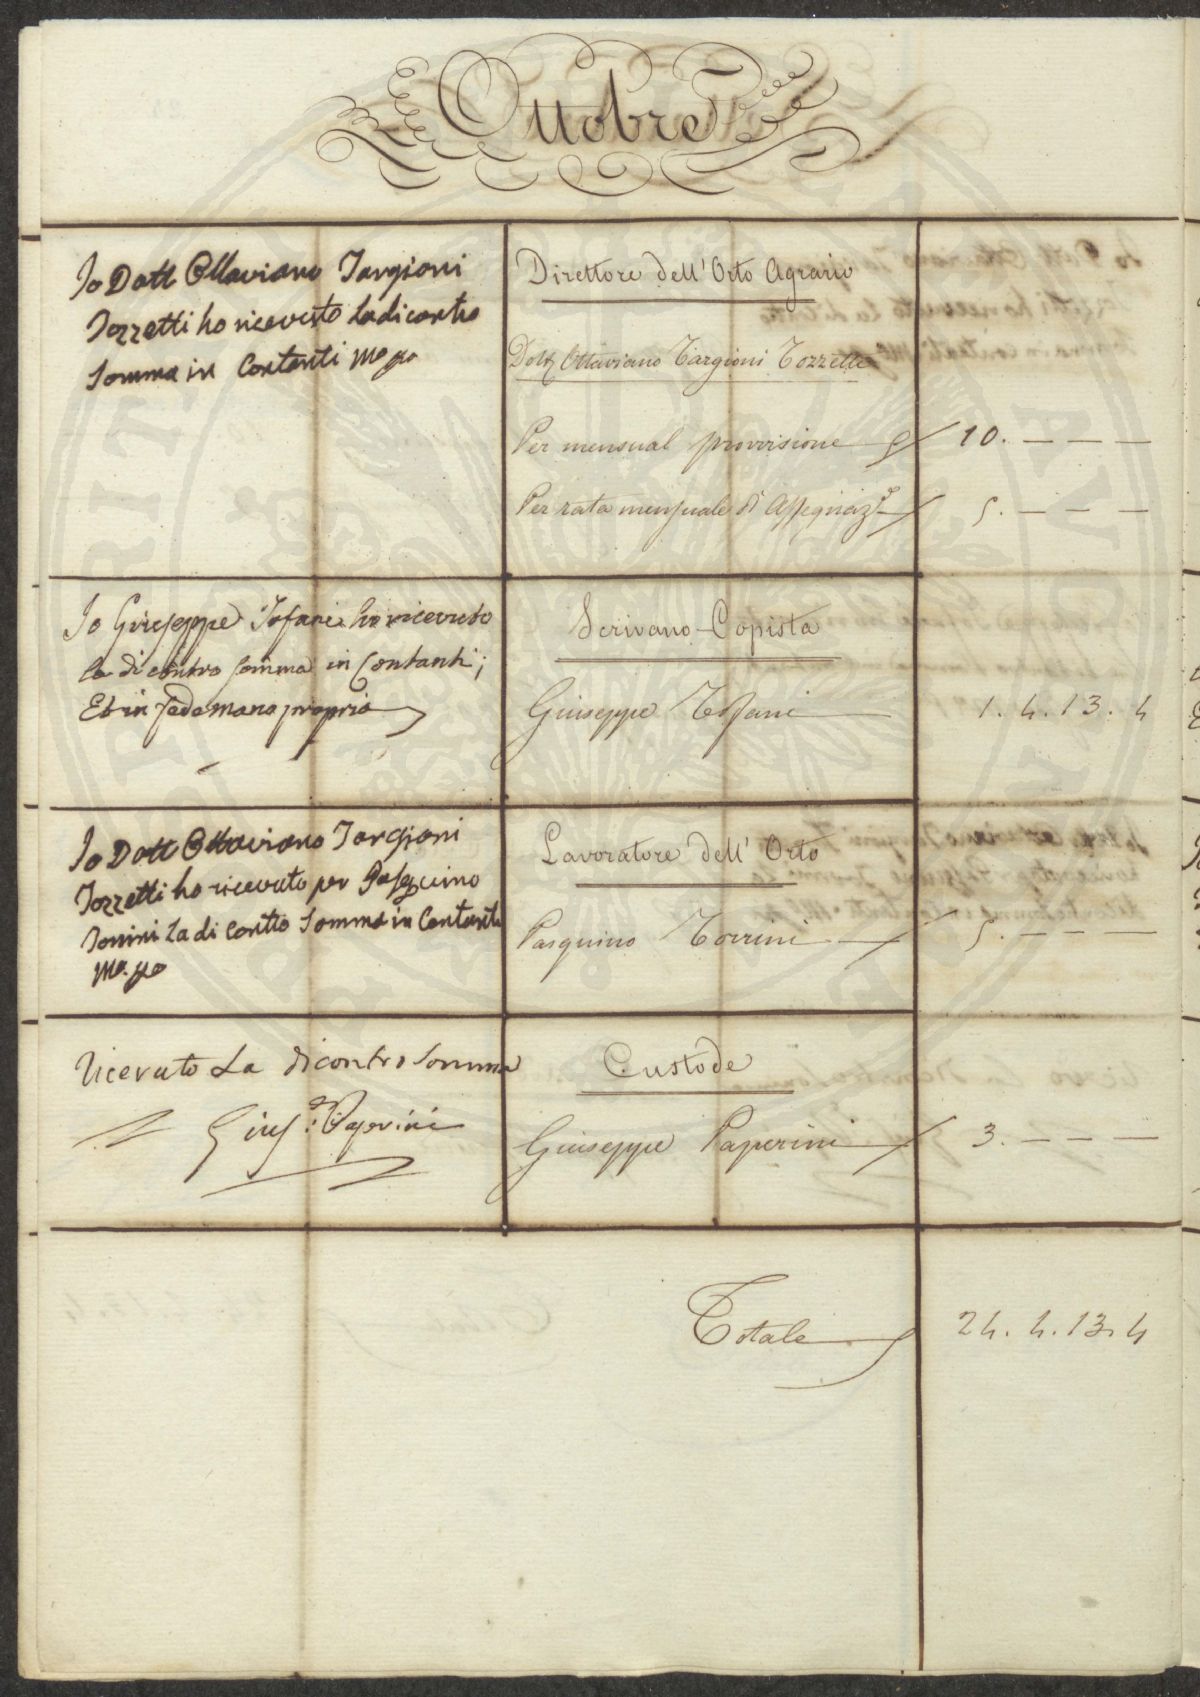 Ottobre
Io Dott Ottaviano Targioni
Tozzetti ho ricevuto la dicontro
Somma in Contanti Mo ppo
Direttore dell'Orto Agrario
Dott Ottaviano Targioni Tozzetti
Per mensual provvisione 10. — — —
Per rata mensuale di Assegnaz.e 5. — — —
Io Giuseppe Tofani ho ricevuto
la di contro somma in Contanti;
Et in fede mano propria
Scrivano-Copista
Giuseppe Tofani 1. 4. 13. 4
Io Dott Ottaviano Targioni
Tozzetti ho ricevuto per Pasquino
Torrini La di contro Somma in Contanti
Mo. ppo
Lavoratore dell'Orto
Pasquino Torrini 5. — — —
Ricevuto La dicontro Somma
Gius.e Paperini
Custode
Giuseppe Paperini 3. — — —
Totale 24. 4. 13. 4